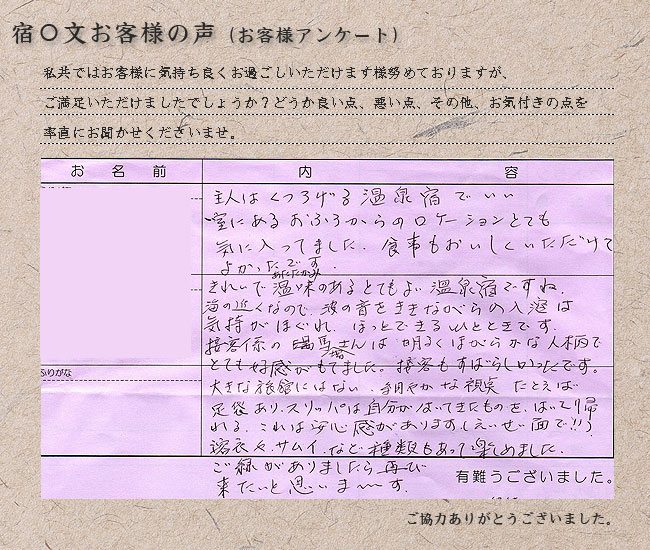 宿〇文お客様の声（お客様アンケート）
私共ではお客様に気持ち良くお過ごしいただけます様努めておりますが、
ご満足いただけましたでしょうか？どうか良い点、悪い点、その他、お気付きの点を
率直にお聞かせくださいませ。
お名前 内容
主人はくつろげる温泉宿でいい
室にあるおふろからのロケーションとても
気に入ってました。食事もおいしくいただけて
よかったです。
あたたかみ
きれいで温味のあるとてもよい温泉宿ですね。
海の近くなので、波の音をききながらの入浴は
気持がほぐれ、ほっとできるひとときです。
接客係の さんは明るくほがらかな人柄で
とても好感がもてました。接客もすばらしかったです。
ふりがな
大きな旅館にはない、細やかな視点 たとえば
足袋あり、スリッパは自分がはいてきたものを、はいて帰
れる。これは安心感があります(えいせい面で!!)
浴衣、サムイ、など種類もあって楽しめました。
ご縁がありましたら再び
来たいと思いまーす。
有難うございました。
ご協力ありがとうございました。